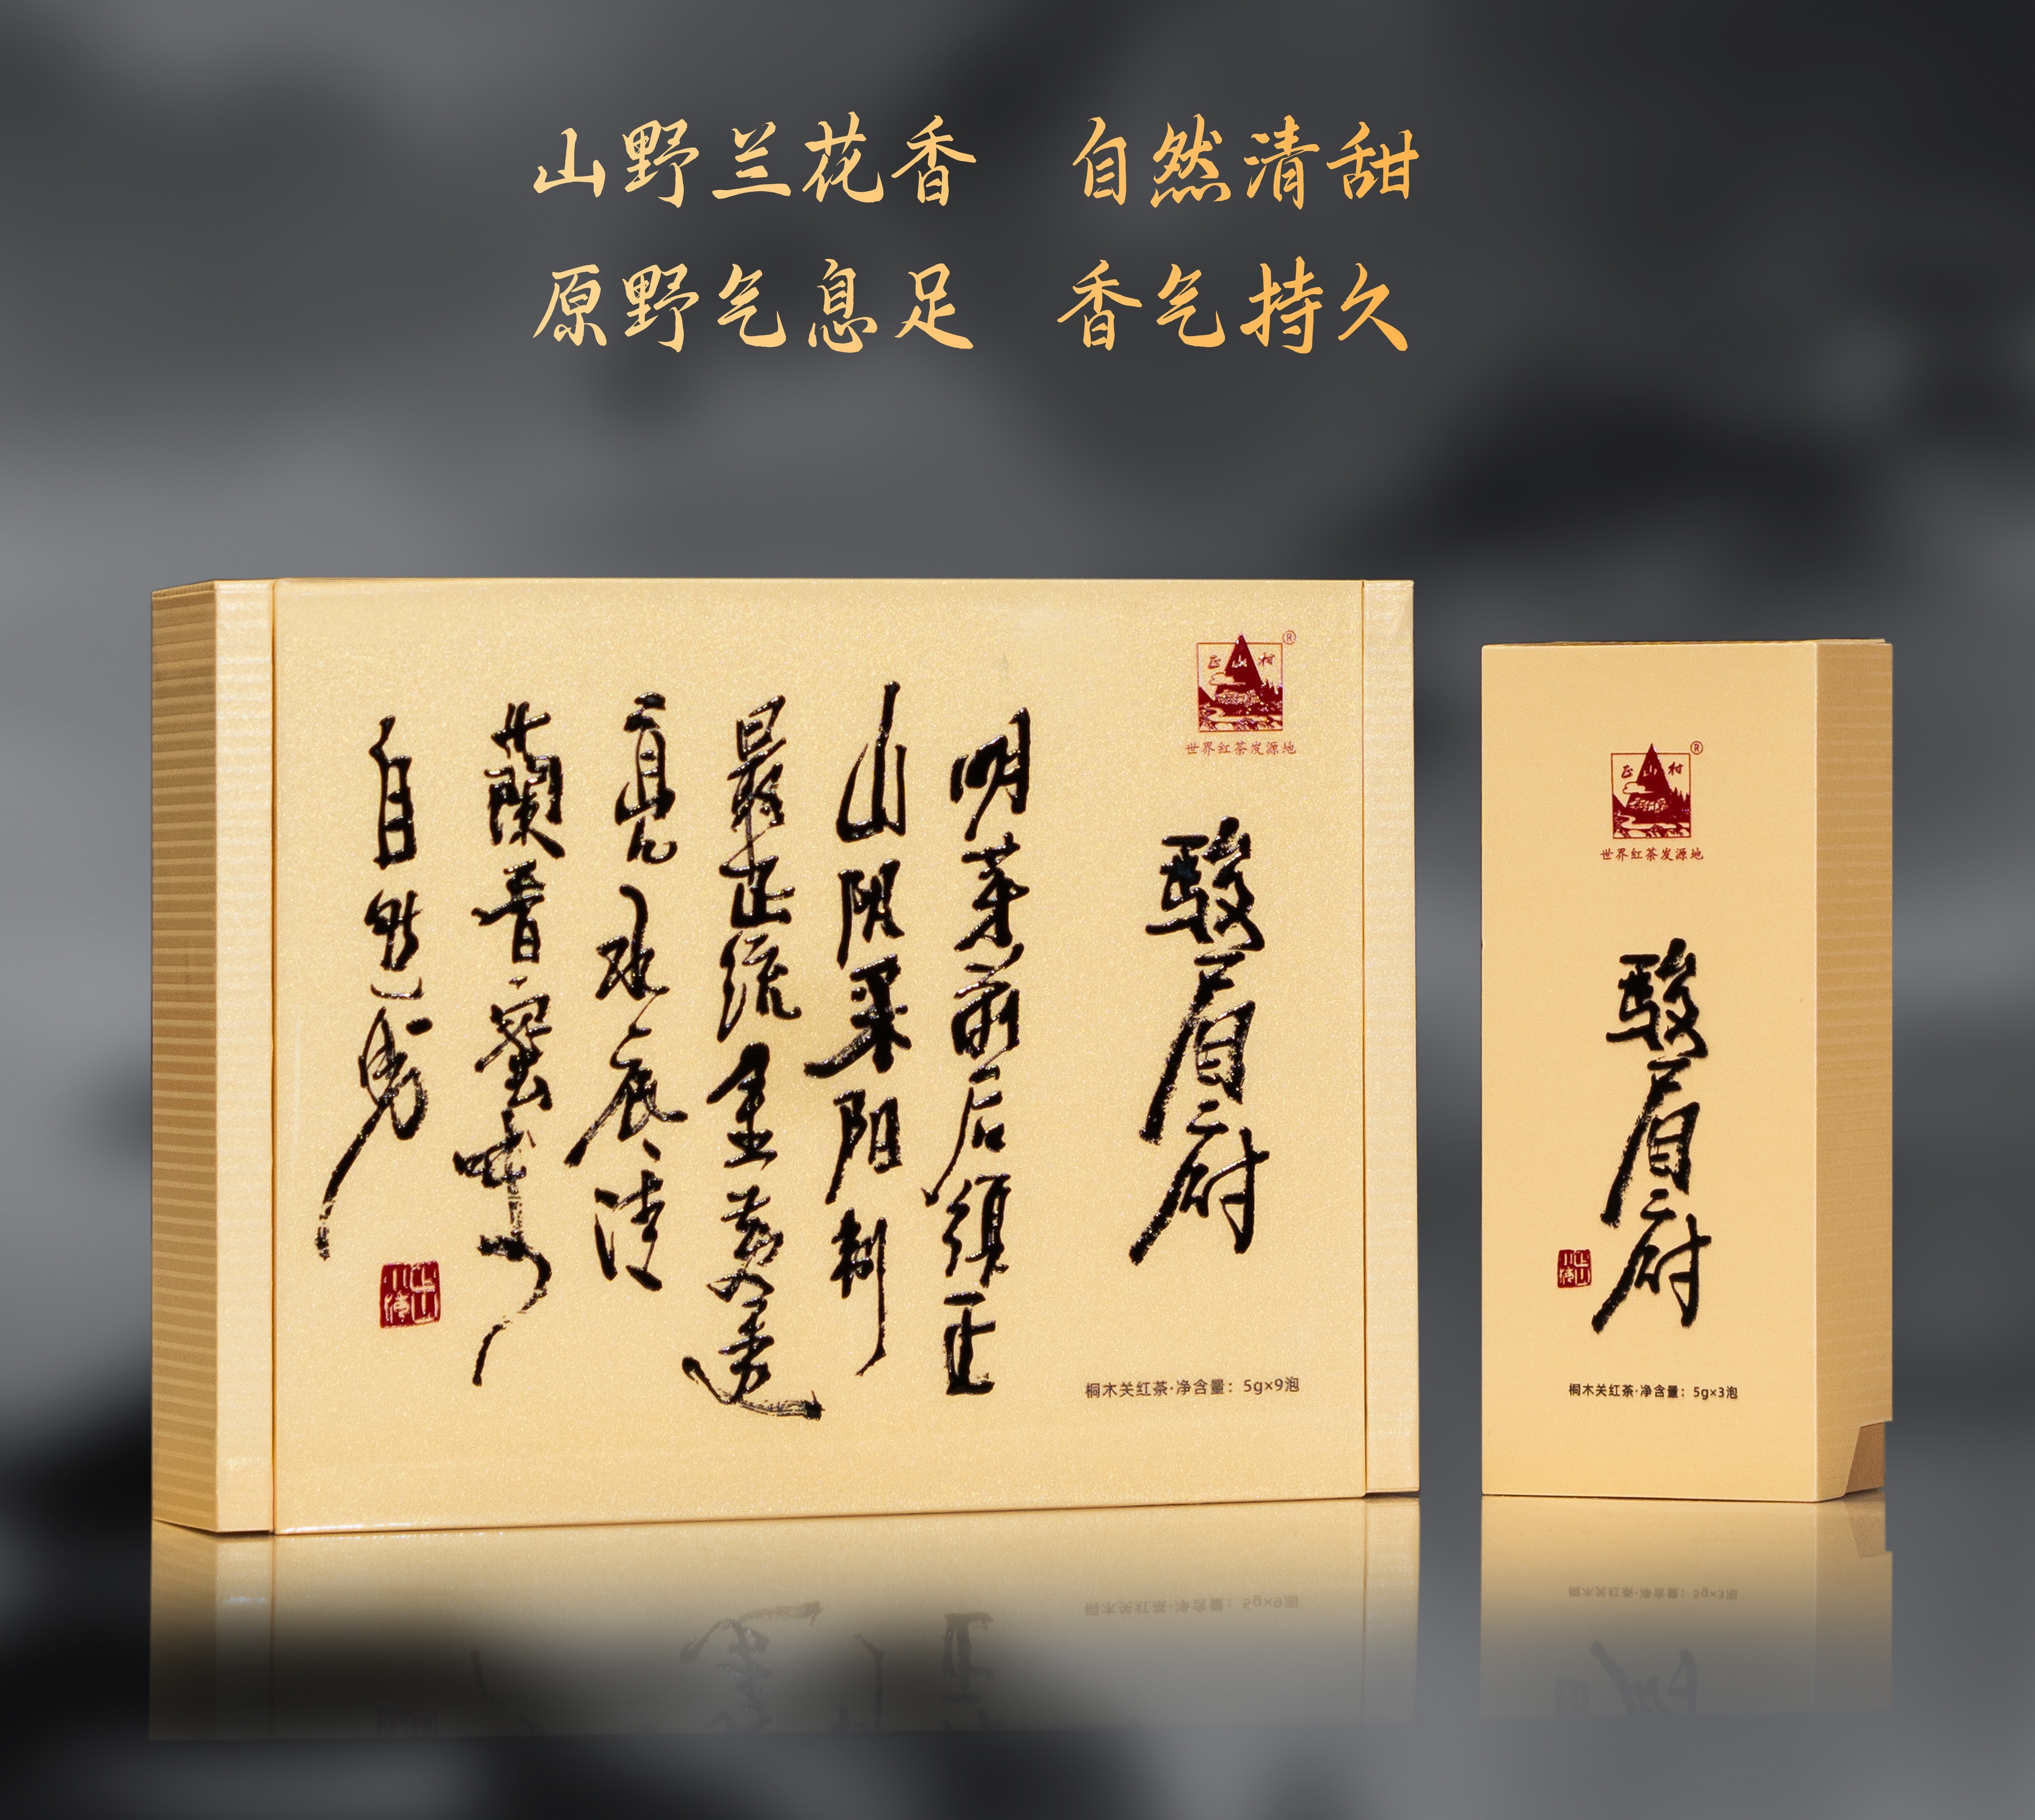 山野兰花香 自然清甜
原野气息足 香气持久
正山村
®
世界红茶发源地
骏眉尉
明芽前后须正
山阴采阳制
最正统金黄透
高见水底清
蘭香蜜味
自然
桐木关红茶·净含量：5g×9泡
正山村
®
世界红茶发源地
骏眉尉
桐木关红茶·净含量：5g×3泡